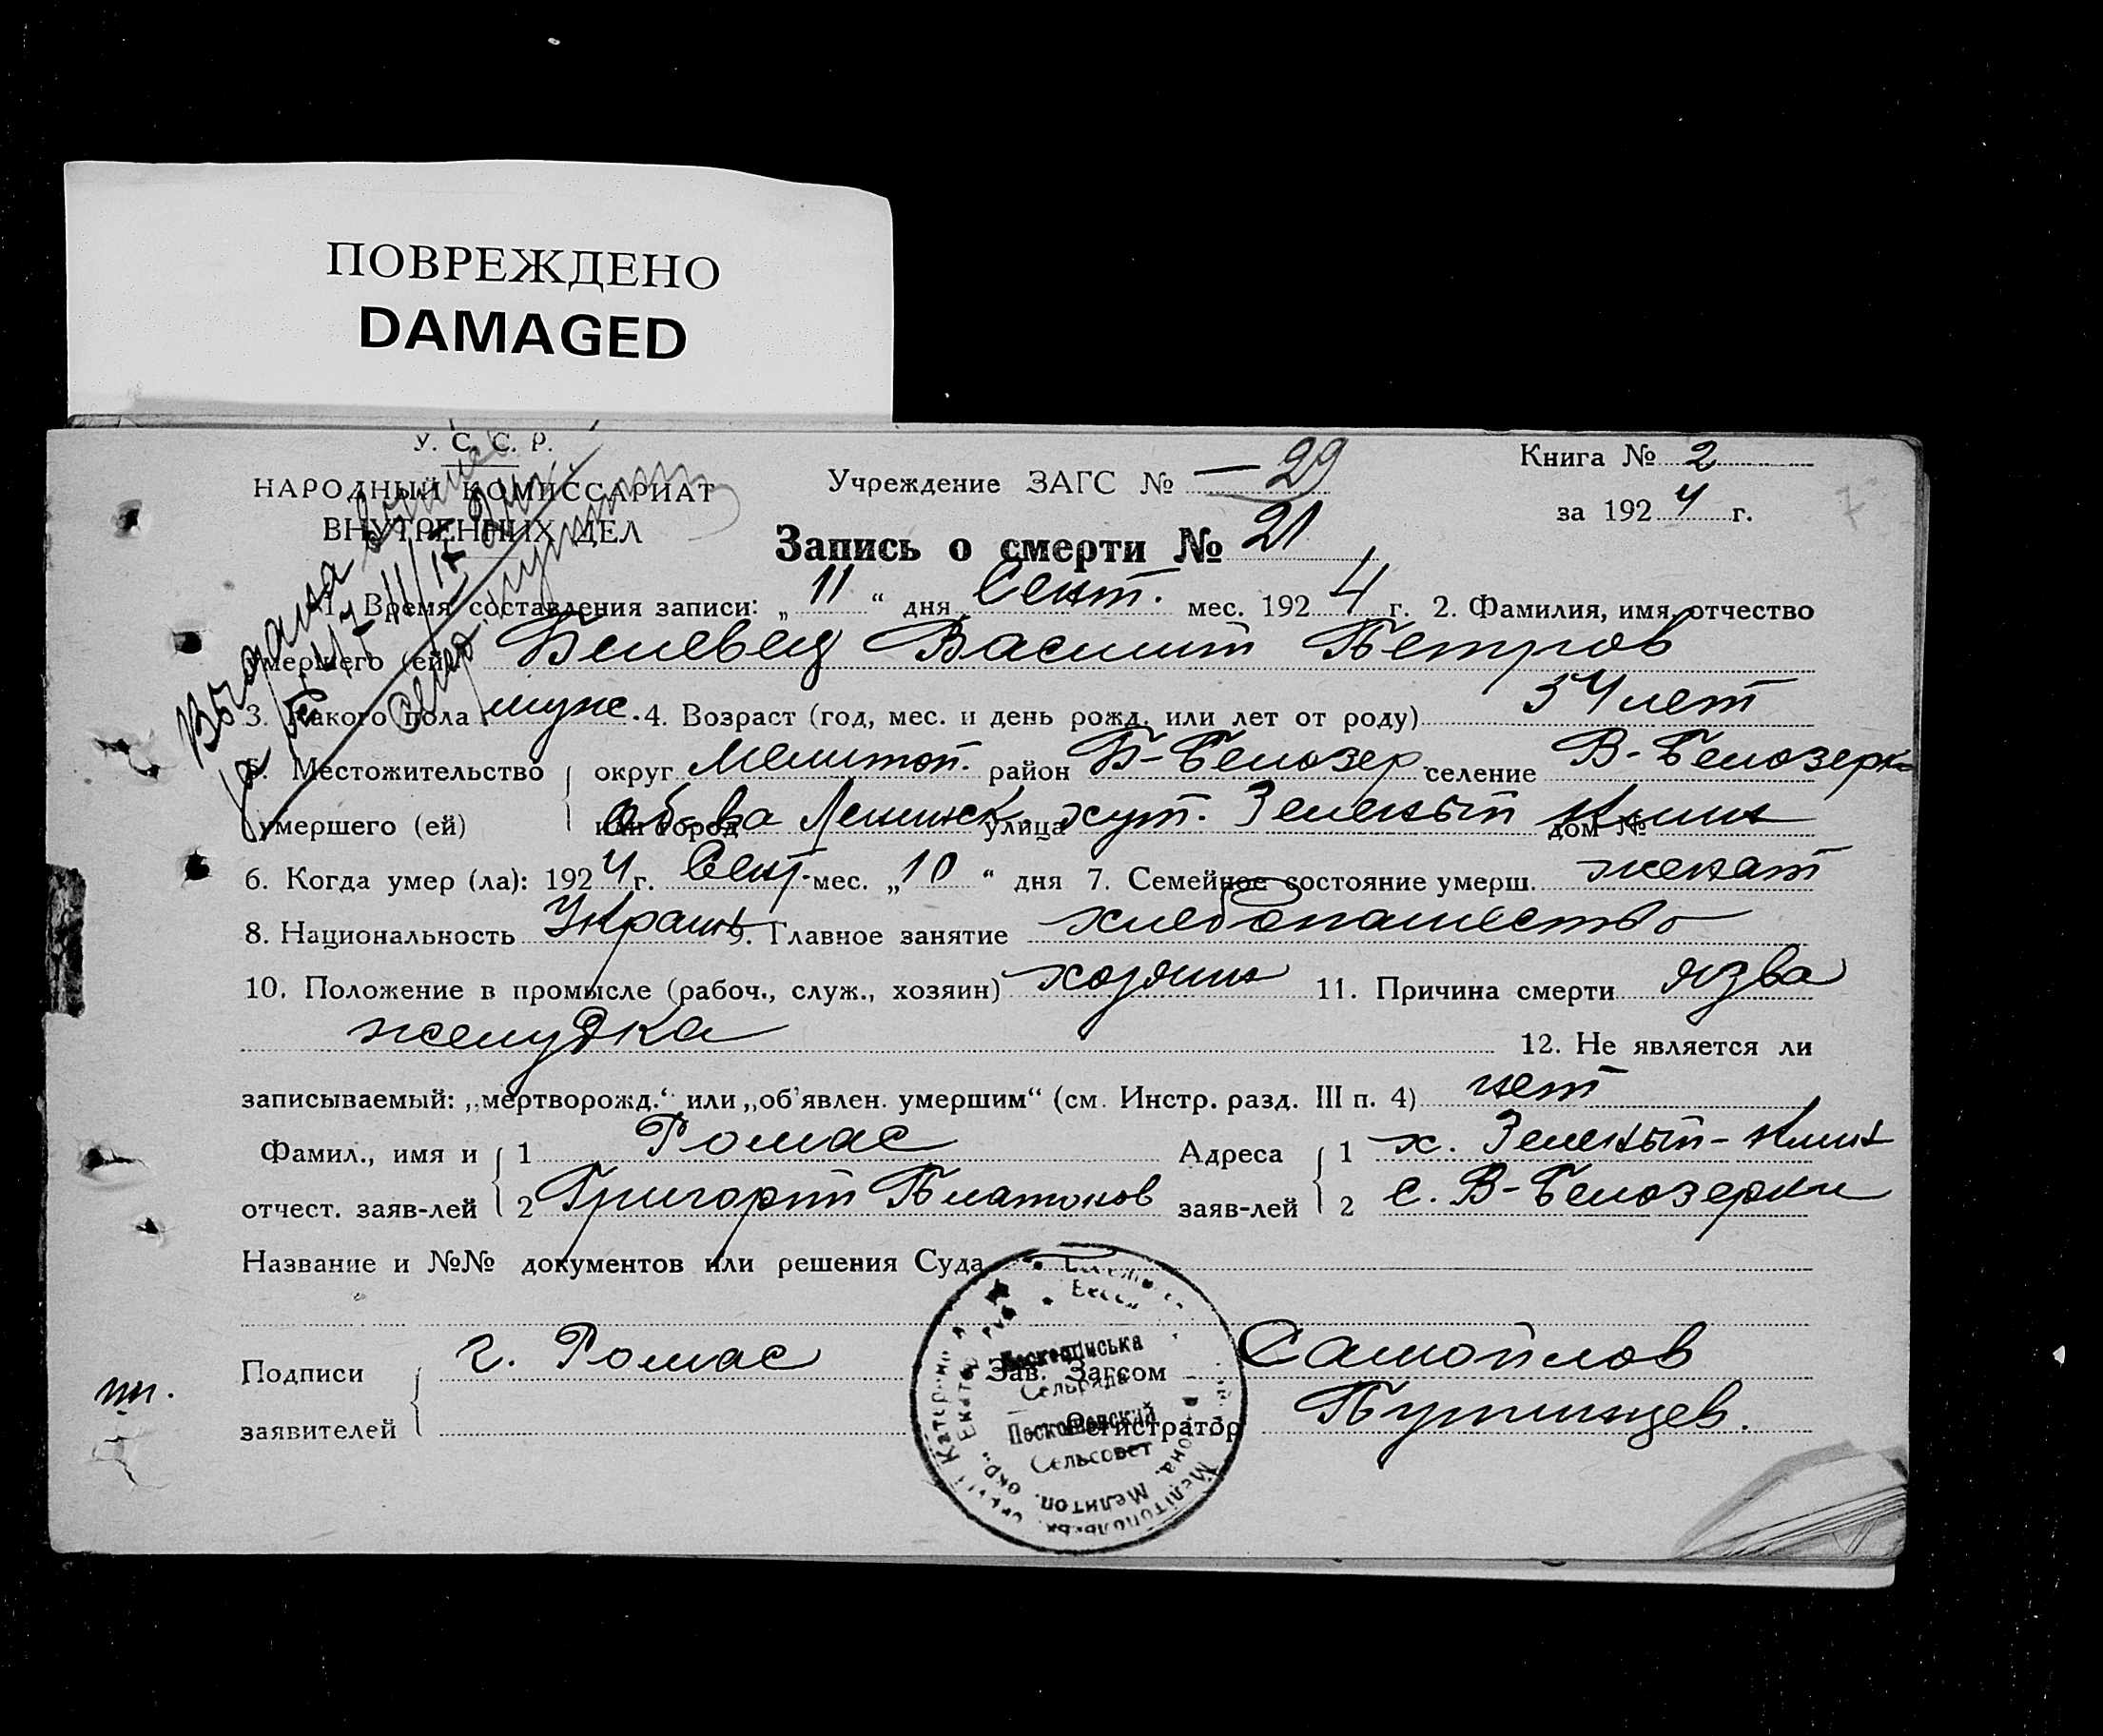 ПОВРЕЖДЕНО
DAMAGED
У. С. С. Р.
НАРОДНЫЙ КОМИССАРИАТ
ВНУТРЕННИХ ДЕЛ
Учреждение ЗАГС № — 29
Книга № 2
за 1924 г.
Запись о смерти № 21
Выдана
1. Время составления записи: „11“ дня Сент. мес. 1924 г. 2. Фамилия, имя, отчество
умершего (ей) Василий Петров
3. Какого пола муж. 4. Возраст (год, мес. и день рожд. или лет от роду) 54 лет
5. Местожительство округ Мелитоп. район Б-Белозер. селение В-Белозерка
умершего (ей) или город об-ва Ленинск. улица хут. Зеленый Клин дом №
6. Когда умер (ла): 1924 г. Сент. мес. „10“ дня 7. Семейное состояние умерш. женат
8. Национальность Украин 9. Главное занятие хлебопашество
10. Положение в промысле (рабоч., служ., хозяин) хозяин 11. Причина смерти язва
желудка 12. Не является ли
записываемый: „мертворожд.“ или „об'явлен. умершим“ (см. Инстр. разд. III п. 4) нет
Фамил., имя и 1 Ромас Адреса 1 х. Зеленый-Клин
отчест. заяв-лей 2 Григорий Платонов заяв-лей 2 с. В-Белозерки
Название и №№ документов или решения Суда
Подписи Г. Ромас Зав. Загсом Самойлов
заявителей Регистратор
Сельрада
Сельсовет